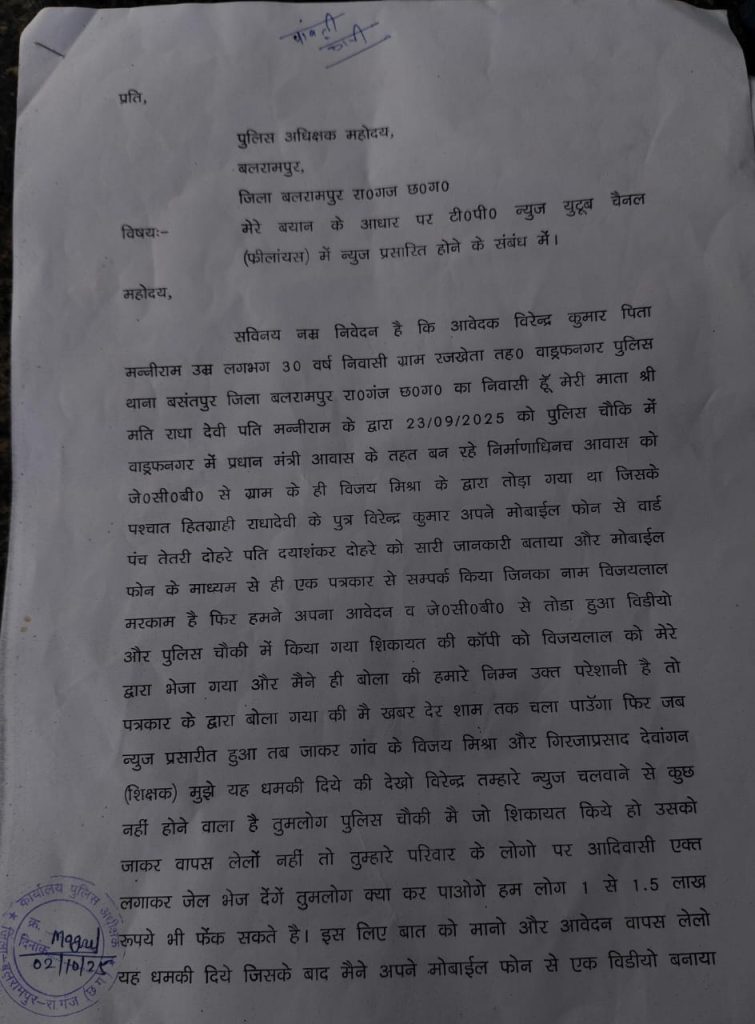 पावती
कापी
प्रति,
पुलिस अधिक्षक महोदय,
बलरामपुर,
जिला बलरामपुर रा०गज छ०ग०
विषयः- मेरे बयान के आधार पर टी०पी० न्युज युटूब चैनल
(फीलांयस) में न्युज प्रसारित होने के संबंध में।
महोदय,
सविनय नम्र निवेदन है कि आवेदक विरेन्द्र कुमार पिता
मन्नीराम उम्र लगभग 30 वर्ष निवासी ग्राम रजखेता तह० वाड्रफनगर पुलिस
थाना बसंतपुर जिला बलरामपुर रा०गंज छ०ग० का निवासी हूँ मेरी माता श्री
मति राधा देवी पति मन्नीराम के द्वारा 23/09/2025 को पुलिस चौकि में
वाड्रफनगर में प्रधान मंत्री आवास के तहत बन रहे निर्माणाधिनच आवास को
जे०सी०बी० से ग्राम के ही विजय मिश्रा के द्वारा तोड़ा गया था जिसके
पश्चात हितग्राही राधादेवी के पुत्र विरेन्द्र कुमार अपने मोबाईल फोन से वार्ड
पंच तेतरी दोहरे पति दयाशंकर दोहरे को सारी जानकारी बताया और मोबाईल
फोन के माध्यम से ही एक पत्रकार से सम्पर्क किया जिनका नाम विजयलाल
मरकाम है फिर हमने अपना आवेदन व जे०सी०बी० से तोडा हुआ विडीयो
और पुलिस चौकी में किया गया शिकायत की कॉपी को विजयलाल को मेरे
द्वारा भेजा गया और मैने ही बोला की हमारे निम्न उक्त परेशानी है तो
पत्रकार के द्वारा बोला गया की मै खबर देर शाम तक चला पाउँगा फिर जब
न्युज प्रसारीत हुआ तब जाकर गांव के विजय मिश्रा और गिरजाप्रसाद देवांगन
(शिक्षक) मुझे यह धमकी दिये की देखो विरेन्द्र तम्हारे न्युज चलवाने से कुछ
नहीं होने वाला है तुमलोग पुलिस चौकी मै जो शिकायत किये हो उसको
जाकर वापस लेलों नहीं तो तुम्हारे परिवार के लोगो पर आदिवासी एक्त
लगाकर जेल भेज देंगें तुमलोग क्या कर पाओगे हम लोग 1 से 1.5 लाख
रूपये भी फेंक सकते है। इस लिए बात को मानो और आवेदन वापस लेलो
यह धमकी दिये जिसके बाद मैने अपने मोबाईल फोन से एक विडीयो बनाया
कार्यालय पुलिस अधीक्षक
क्र.
दिनांक
02/10/25
जिला-बलरामपुर-रा.गंज (छ.ग.)